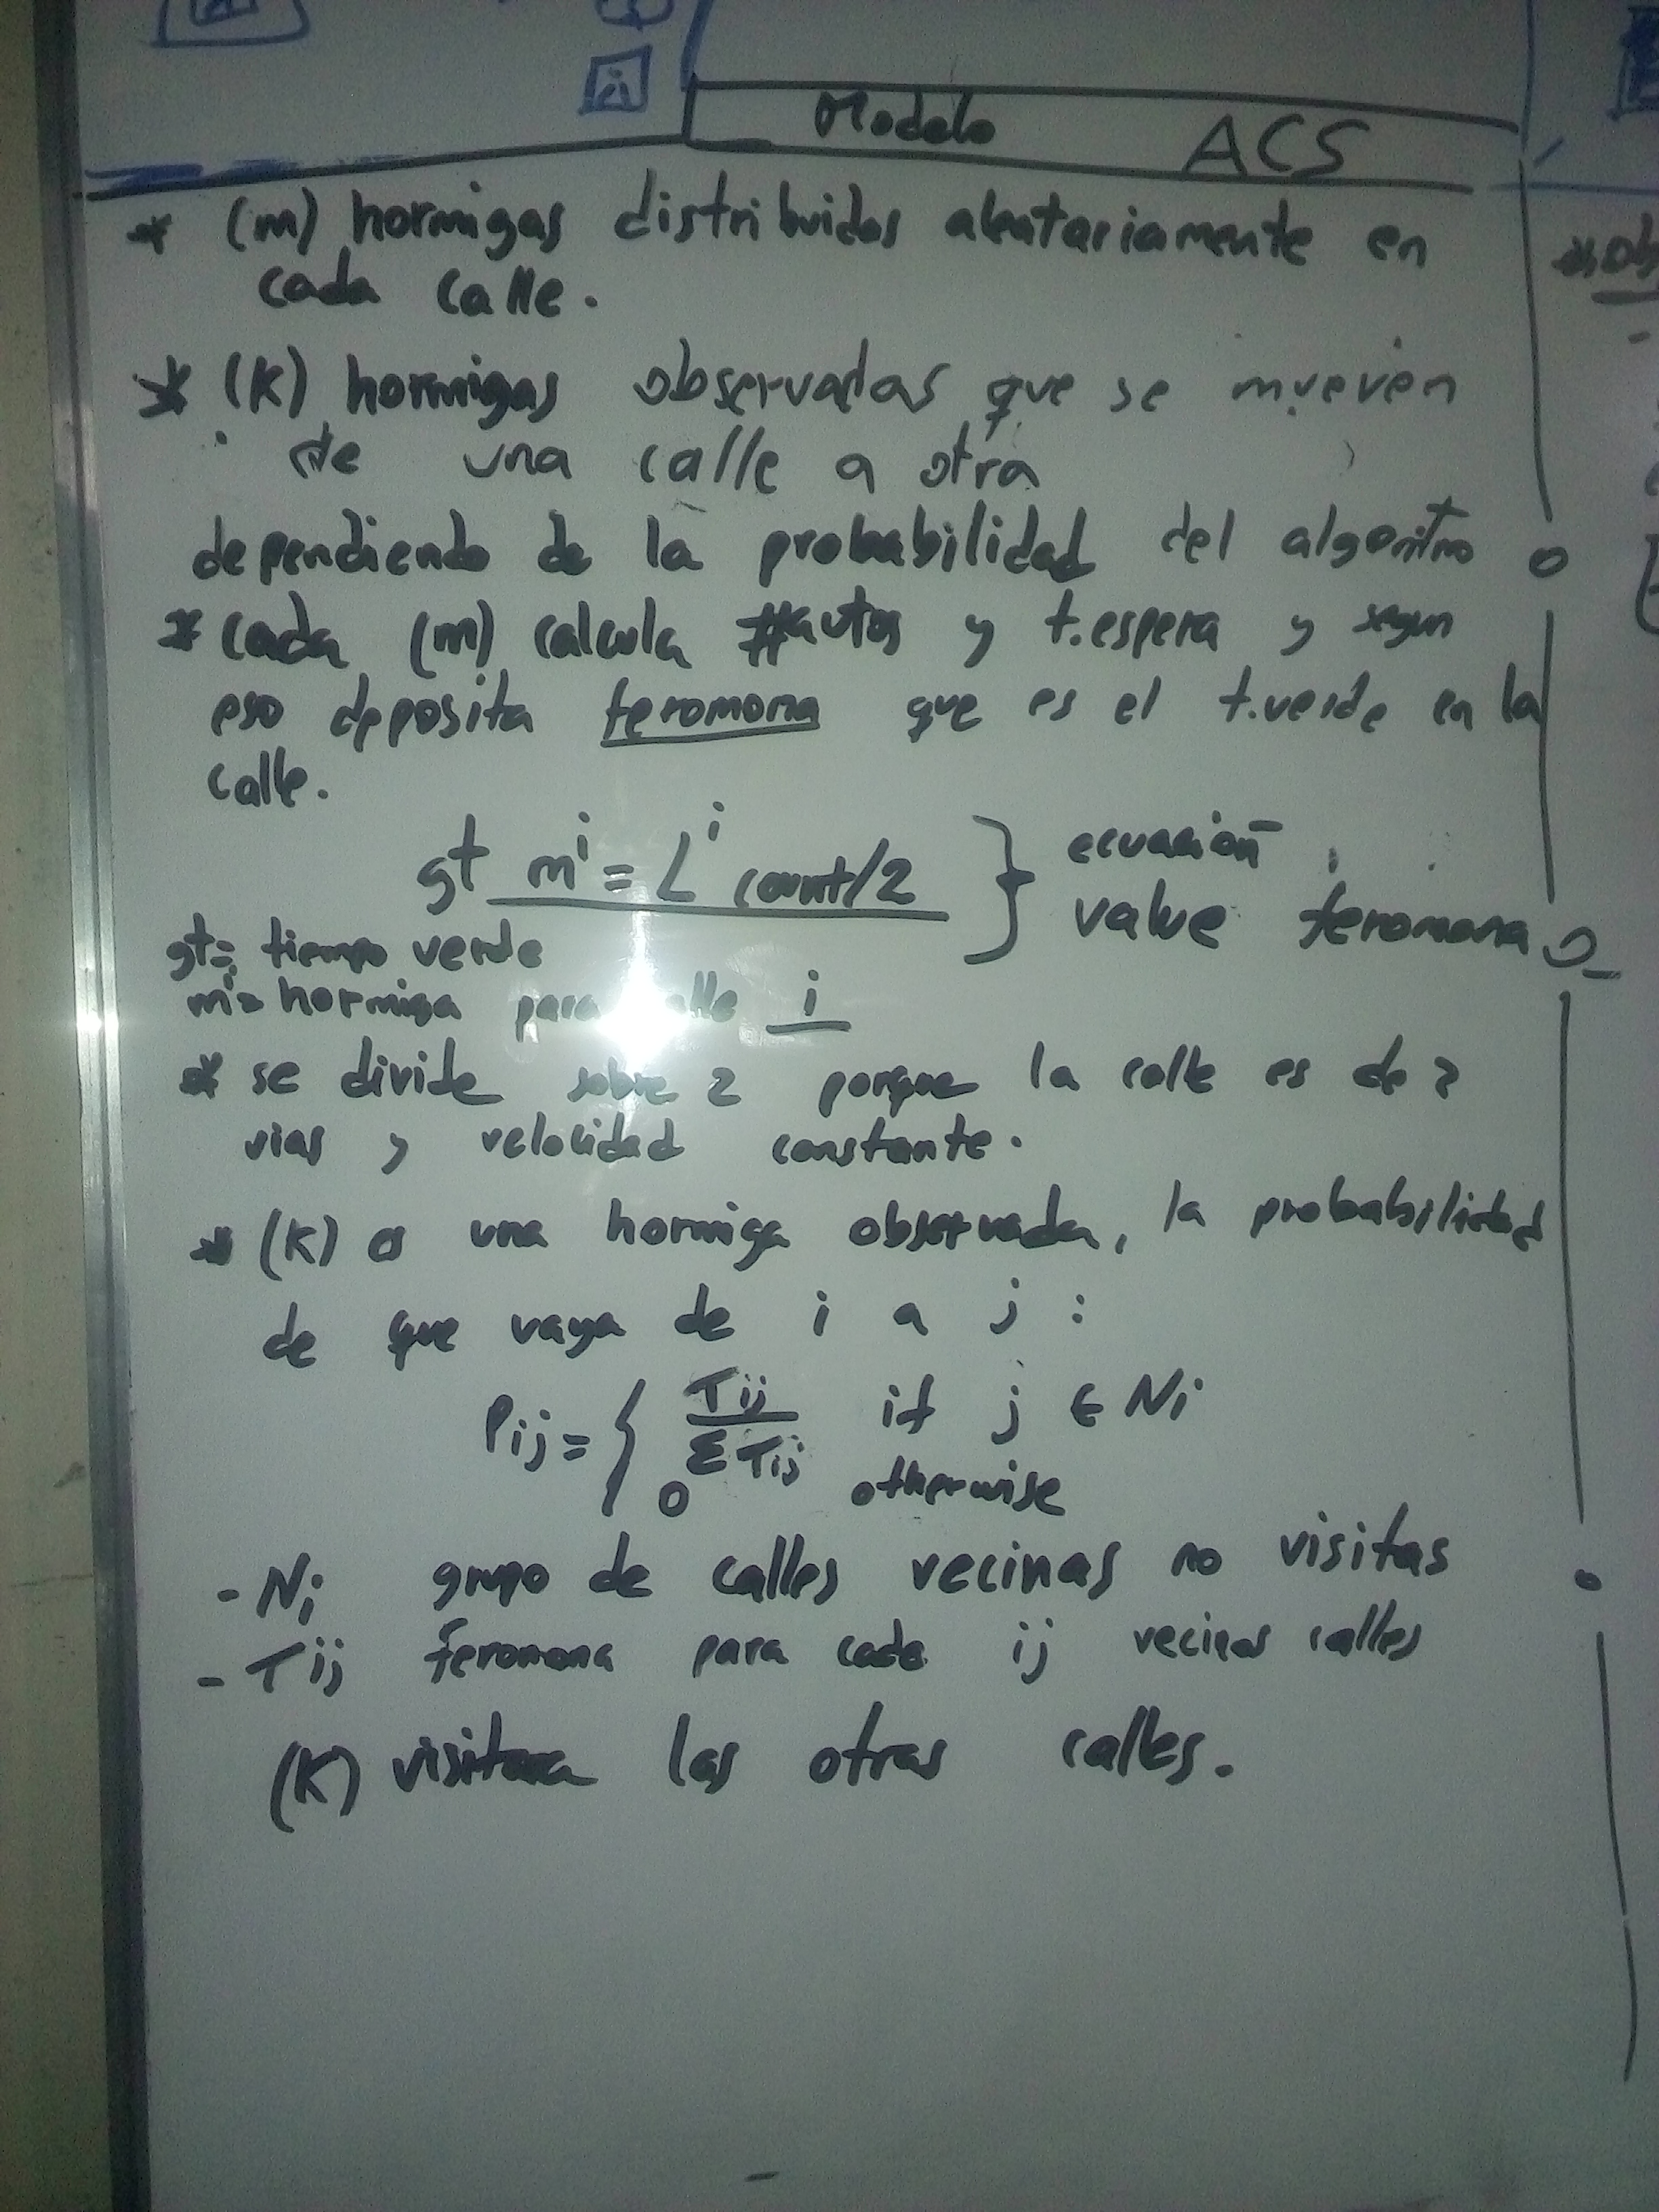 Modelo ACS
* (m) hormigas distribuidas aleatoriamente en
cada calle.
* (K) hormigas observadas que se mueven
de una calle a otra
dependiendo de la probabilidad del algoritmo
* cada (m) calcula #autos y t.espera y segun
eso deposita feromona que es el t.verde en la
calle.
gt m^i = L^i count/2 } ecuación
value feromona
gt= tiempo verde
m^i= hormiga para calle i
* se divide sobre 2 porque la calle es de 2
vias y velocidad constante.
* (K) es una hormiga observada, la probabilidad
de que vaya de i a j :
Pij = { Tij / ΣTij if j ∈ Ni
0 otherwise
- Ni grupo de calles vecinas no visitas
- Tij feromona para cada ij vecinas calles
(K) visitara las otras calles.